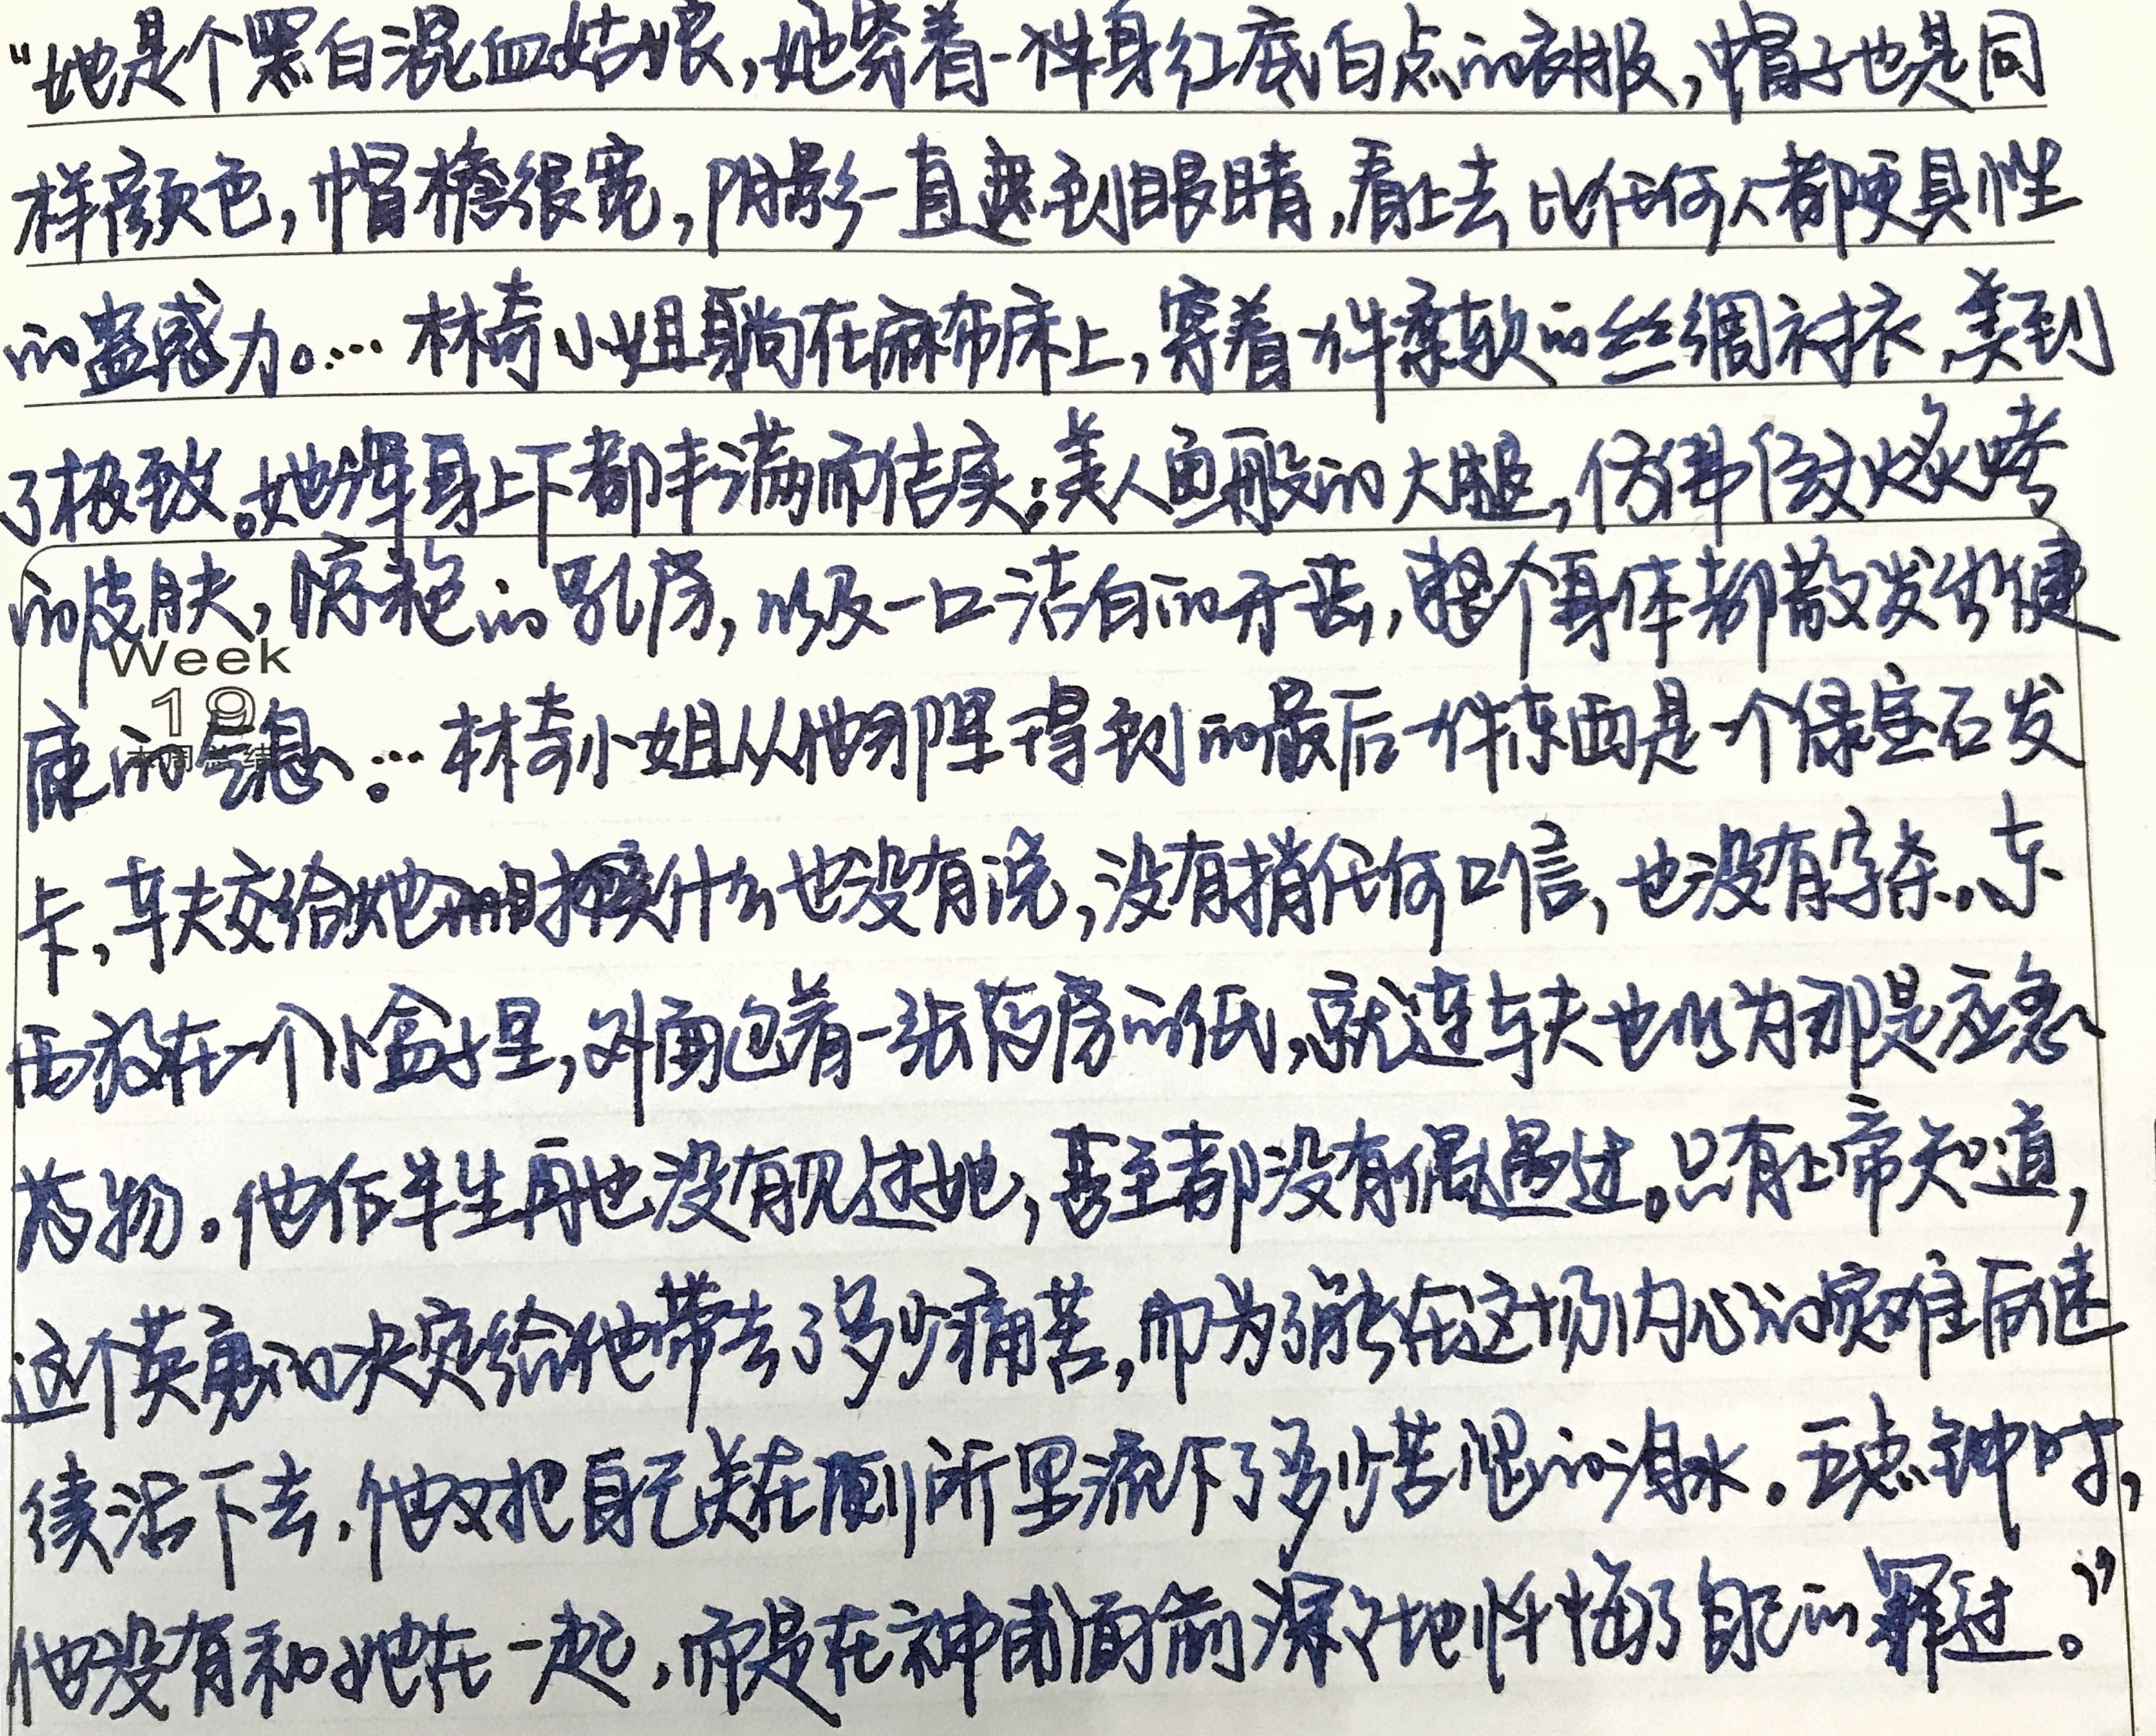 “她是个黑白混血姑娘，她穿着一件身红底白点的衣服，帽子也是同
样颜色，帽檐很宽，阴影一直遮到眼睛，看上去比任何人都更具性
的蛊惑力。…林奇小姐躺在麻布床上，穿着一件柔软的丝绸衬衣，美到
了极致。她浑身上下都丰满而结实：美人鱼般的大腿，仿佛经文火炙烤
的皮肤，惊艳的乳房，以及一口洁白的牙齿，整个身体都散发出健
Week
19
康的气息。…林奇小姐从他那里得到的最后一件东西是一个绿宝石发
卡，车夫交给她时什么也没有说，没有捎任何口信，也没有字条。东
西放在一个小盒子里，外面包着一张药房的纸，就连车夫也以为那是应急
药物。他后半生再也没有见过她，甚至都没有偶遇过。只有上帝知道，
这个英勇的决定给他带去了多少痛苦，而为了能在这场内心的灾难后继
续活下去，他又把自己关在厕所里流下了多少苦胆的泪水。五点钟时，
他没有和她在一起，而是在神甫面前深深地忏悔了自己的罪过。”